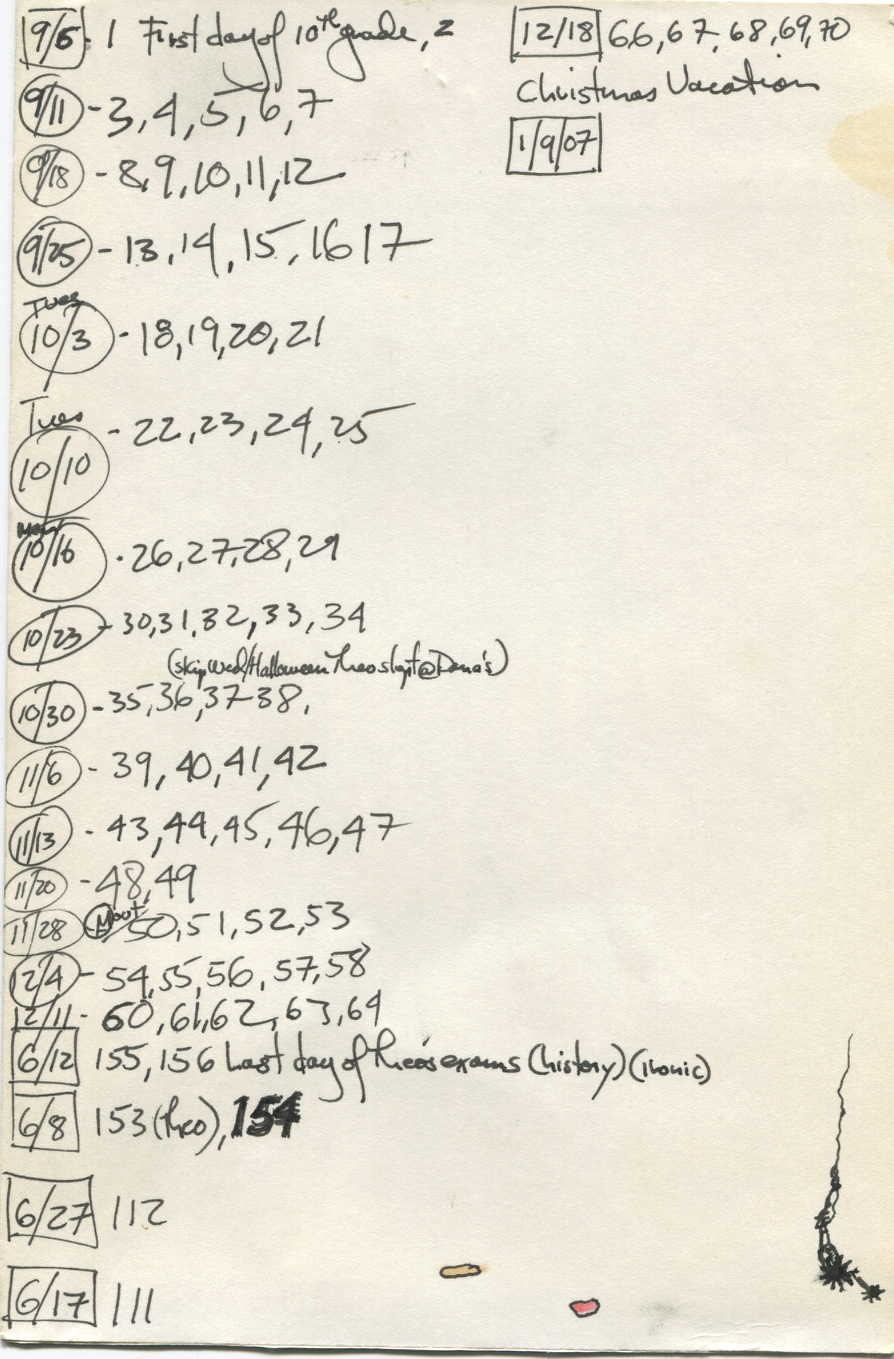 9/5 - 1 First day of 10th grade, 2
9/11 - 3, 4, 5, 6, 7
9/18 - 8, 9, 10, 11, 12
9/25 - 13, 14, 15, 16 17
Tues
10/3 - 18, 19, 20, 21
Tues
10/10 - 22, 23, 24, 25
Mon
10/16 - 26, 27, 28, 29
10/23 - 30, 31, 32, 33, 34
(skip Wed/Halloween Theo slept @ Dana's)
10/30 - 35, 36, 37 38,
11/6 - 39, 40, 41, 42
11/13 - 43, 44, 45, 46, 47
11/20 - 48, 49
11/28 50, 51, 52, 53
12/4 - 54, 55, 56, 57, 58
12/11 - 60, 61, 62, 63, 64
6/12 155, 156 Last day of Theo's exams (history) (ironic)
6/8 153 (Theo), 154
6/27 112
6/17 111
12/18 66, 67, 68, 69, 70
Christmas Vacation
1/9/07